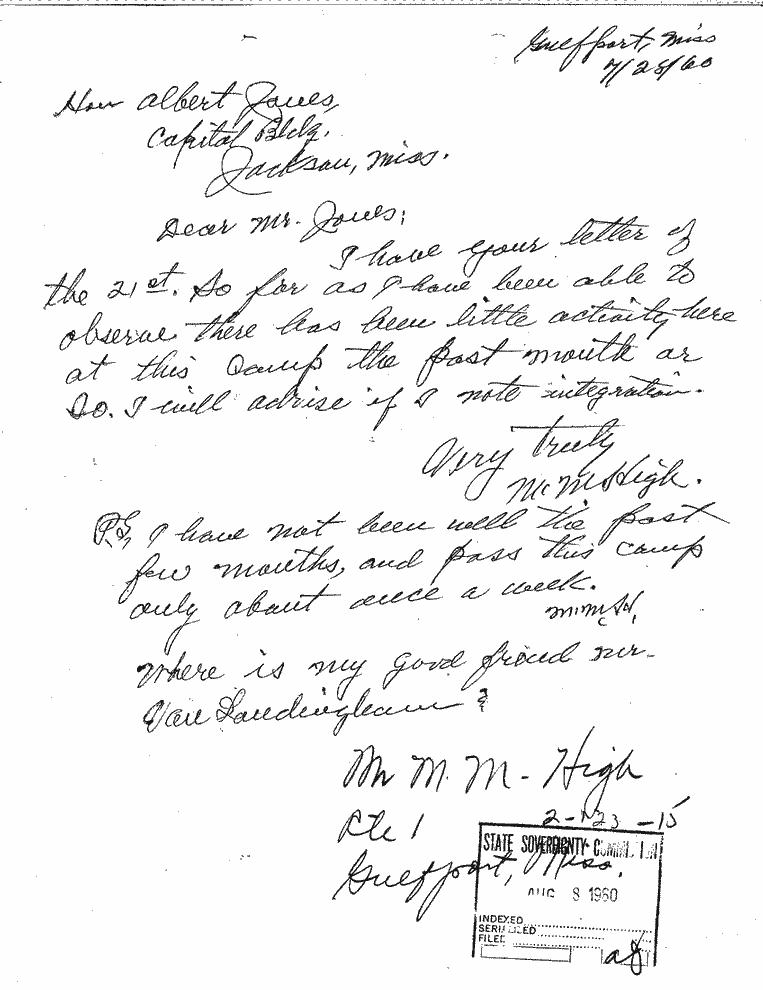 Gulfport, Miss
7/28/60
Hon Albert Jones,
Capitol Bldg.
Jackson, Miss.
Dear Mr. Jones;
I have your letter of
the 21st. So far as I have been able to
observe there has been little activity here
at this camp the past month or
so. I will advise if I note integration.
Very truly
McHigh.
P.S, I have not been well the past
few months, and pass this camp
only about once a week.
Where is my good friend Mr.
Van Landingham?
Mr M. M - High
Rte 1
2-123-15
STATE SOVEREIGNTY COMMISSION
Gulfport, Miss.
AUG 8 1960
INDEXED
SERIALIZED
FILED